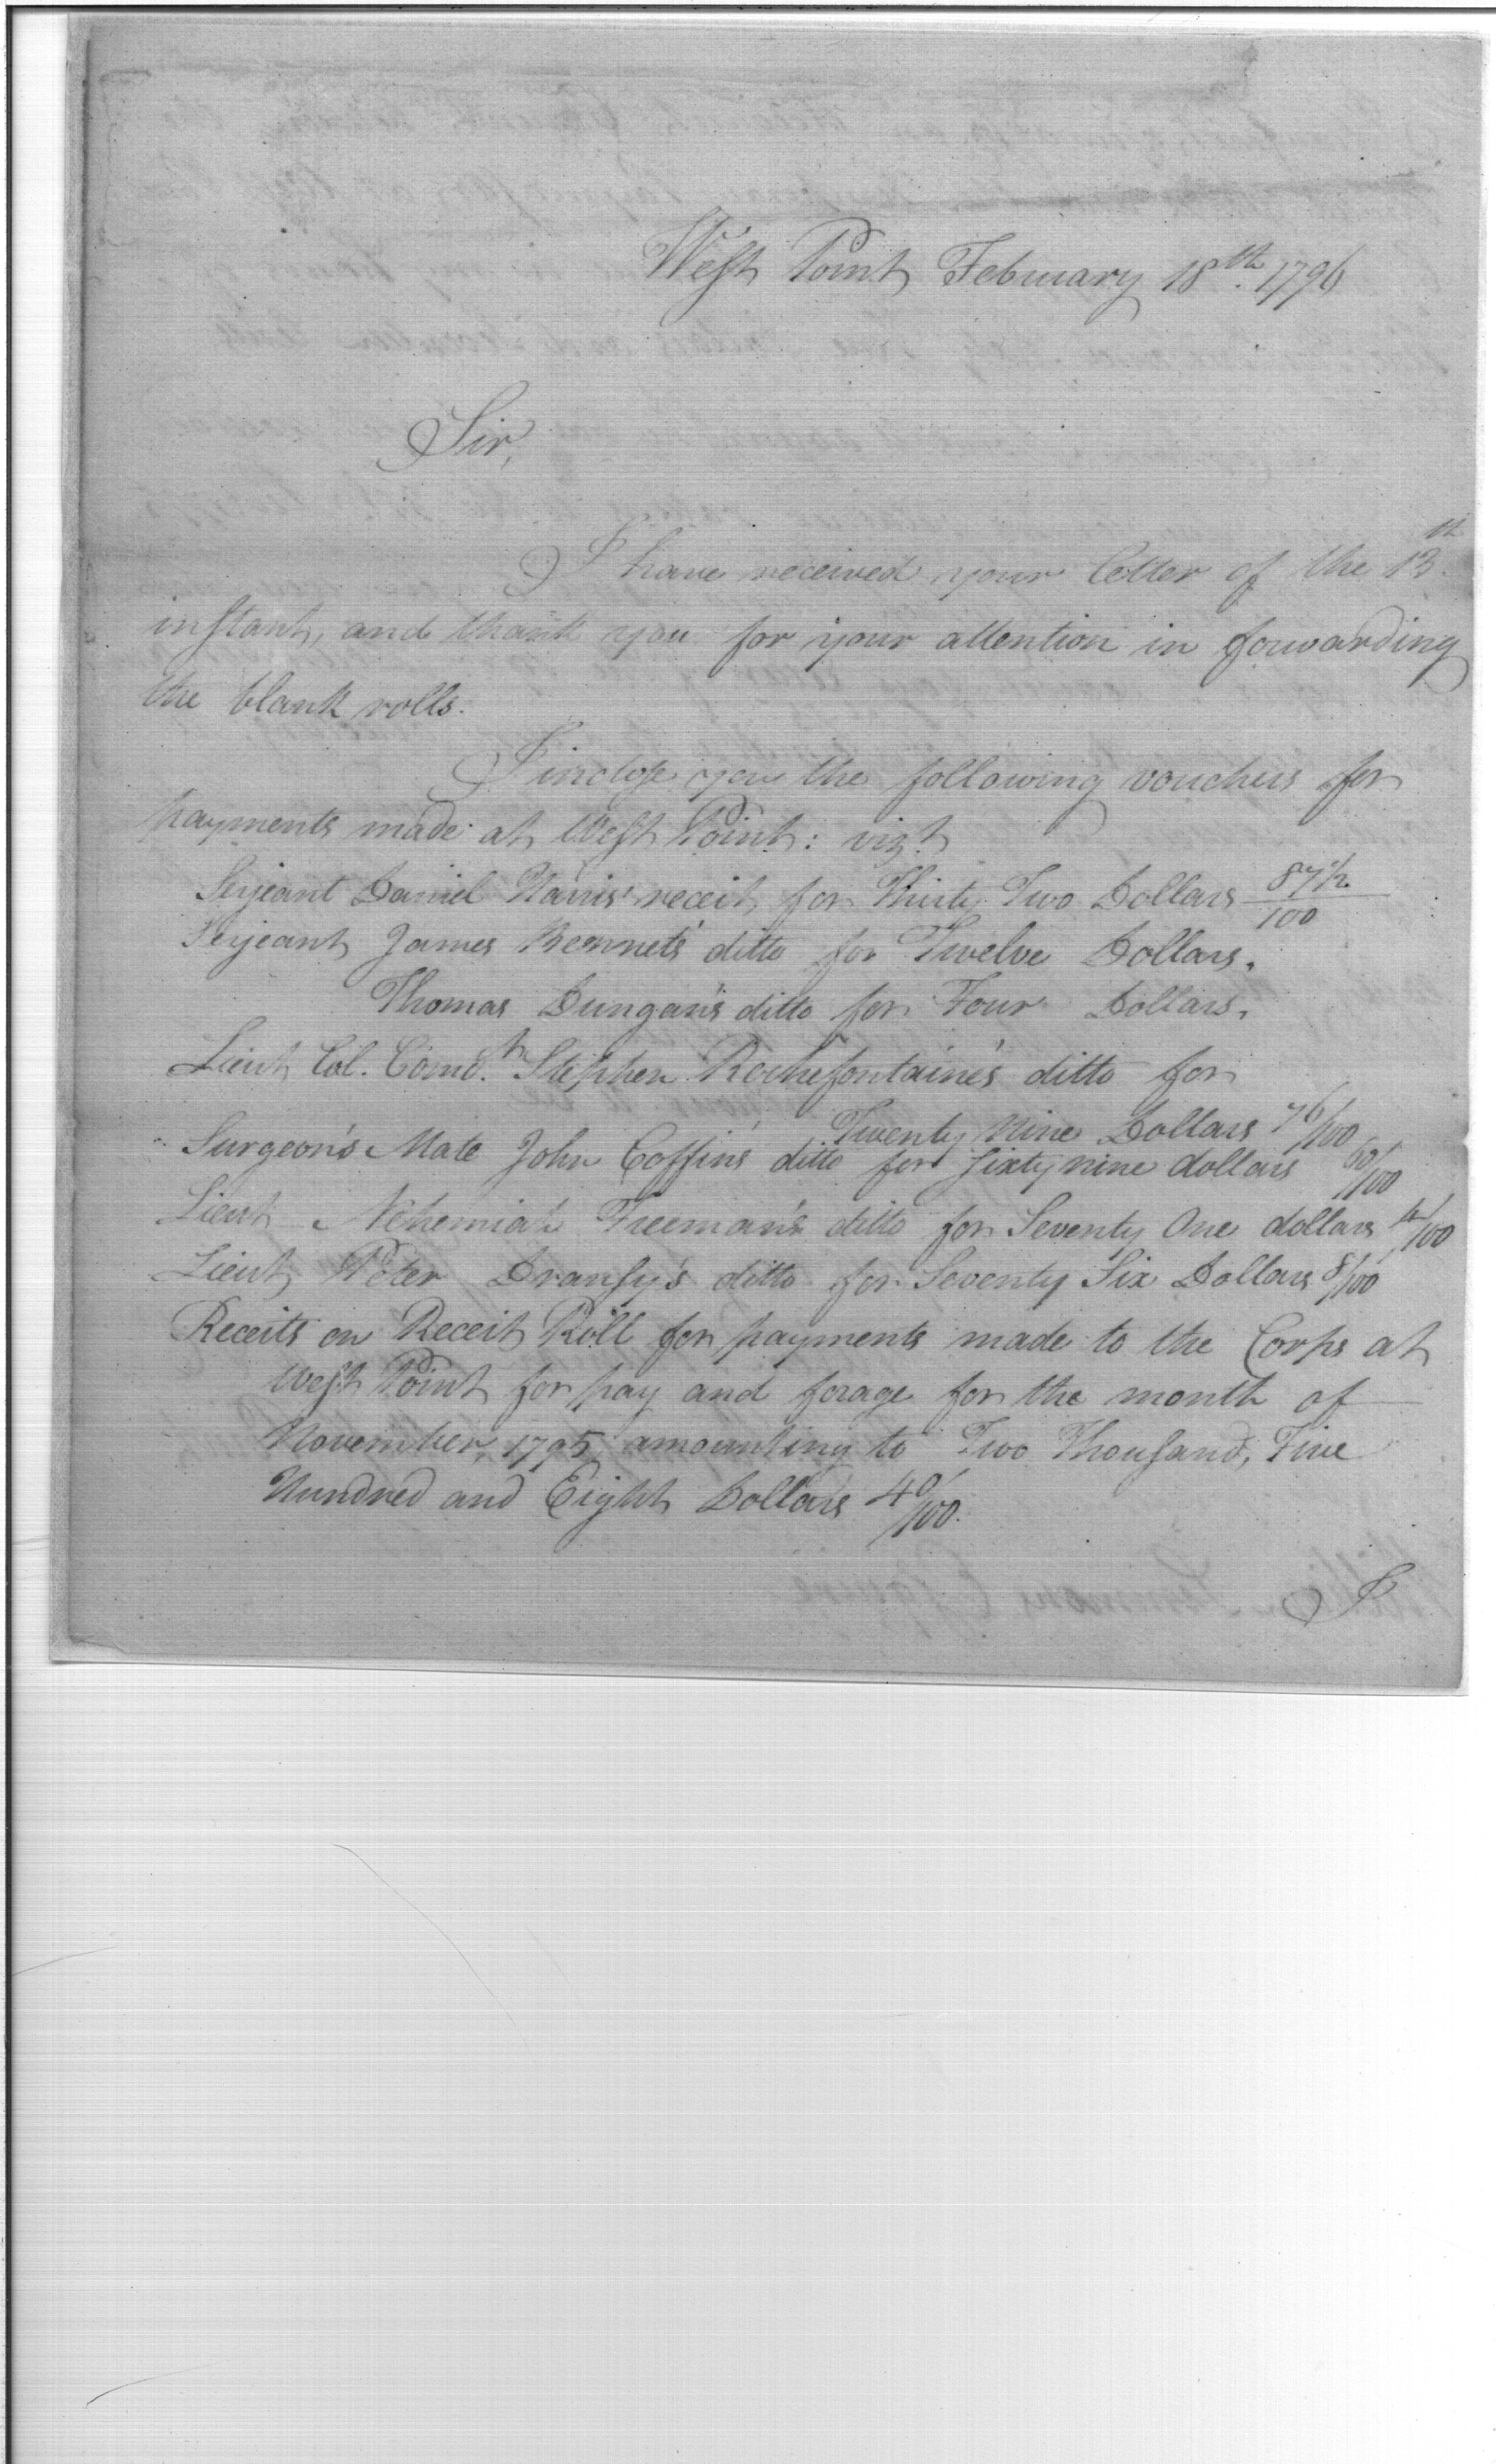 West Point February 18th. 1796
Sir,
I have received your letter of the 13th.
instant, and thank you for your attention in forwarding
the blank rolls.
I inclose you the following vouchers for
payments made at West Point: vizt
Serjeant Daniel Harris' receit for Thirty Two Dollars 87 1/2/100
Serjeant James Bennets' ditto for Twelve Dollars.
Thomas Dungan's ditto for Four Dollars.
Lieut Col. Comdt. Stephen Rochefontaine's ditto for
Twenty Nine Dollars 76/100
Surgeon's Mate John Coffin's ditto for sixty nine dollars 60/100
Lieut Nehemiah Freeman's ditto for Seventy One dollars /100
Lieut Peter Dransy's ditto for Seventy Six Dollars 8/100
Receits on Receit Roll for payments made to the Corps at
West Point for pay and forage for the month of
November, 1795, amounting to Two Thousand, Five
Hundred and Eight Dollars 40/100.
I